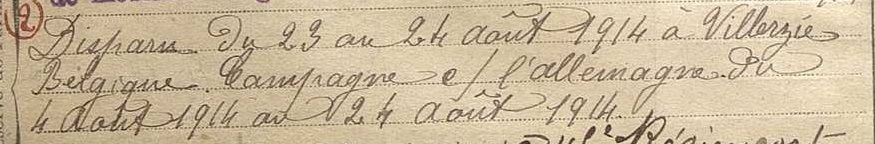 (2)
Disparu du 23 au 24 août 1914 à Villerzie
Belgique. Campagne c/ l'allemagne. Du
4 Août 1914 au 24 Août 1914.